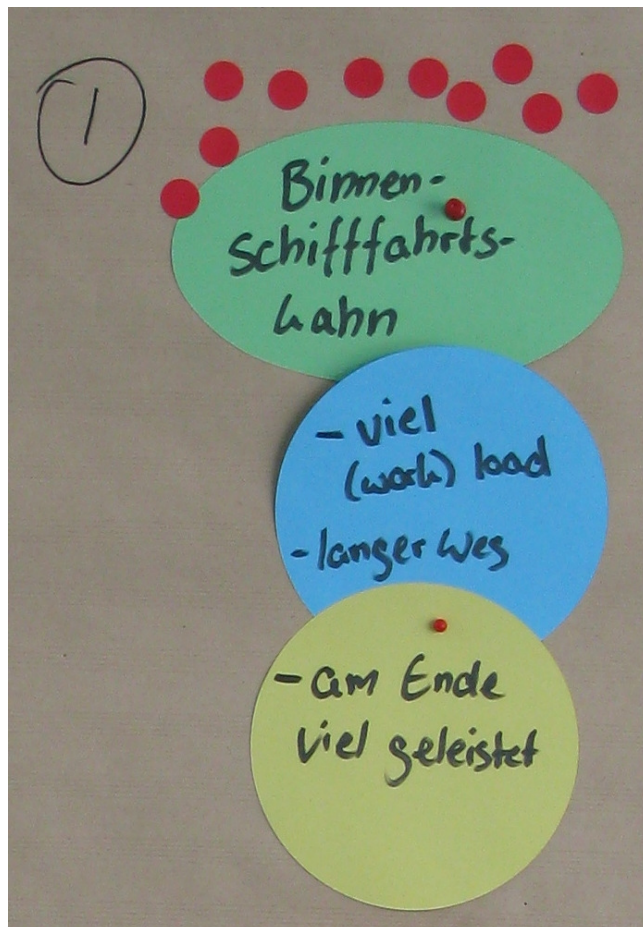 1
Binnen-
Schifffahrts-
kahn
- viel
(work) load
- langer Weg
- am Ende
viel geleistet